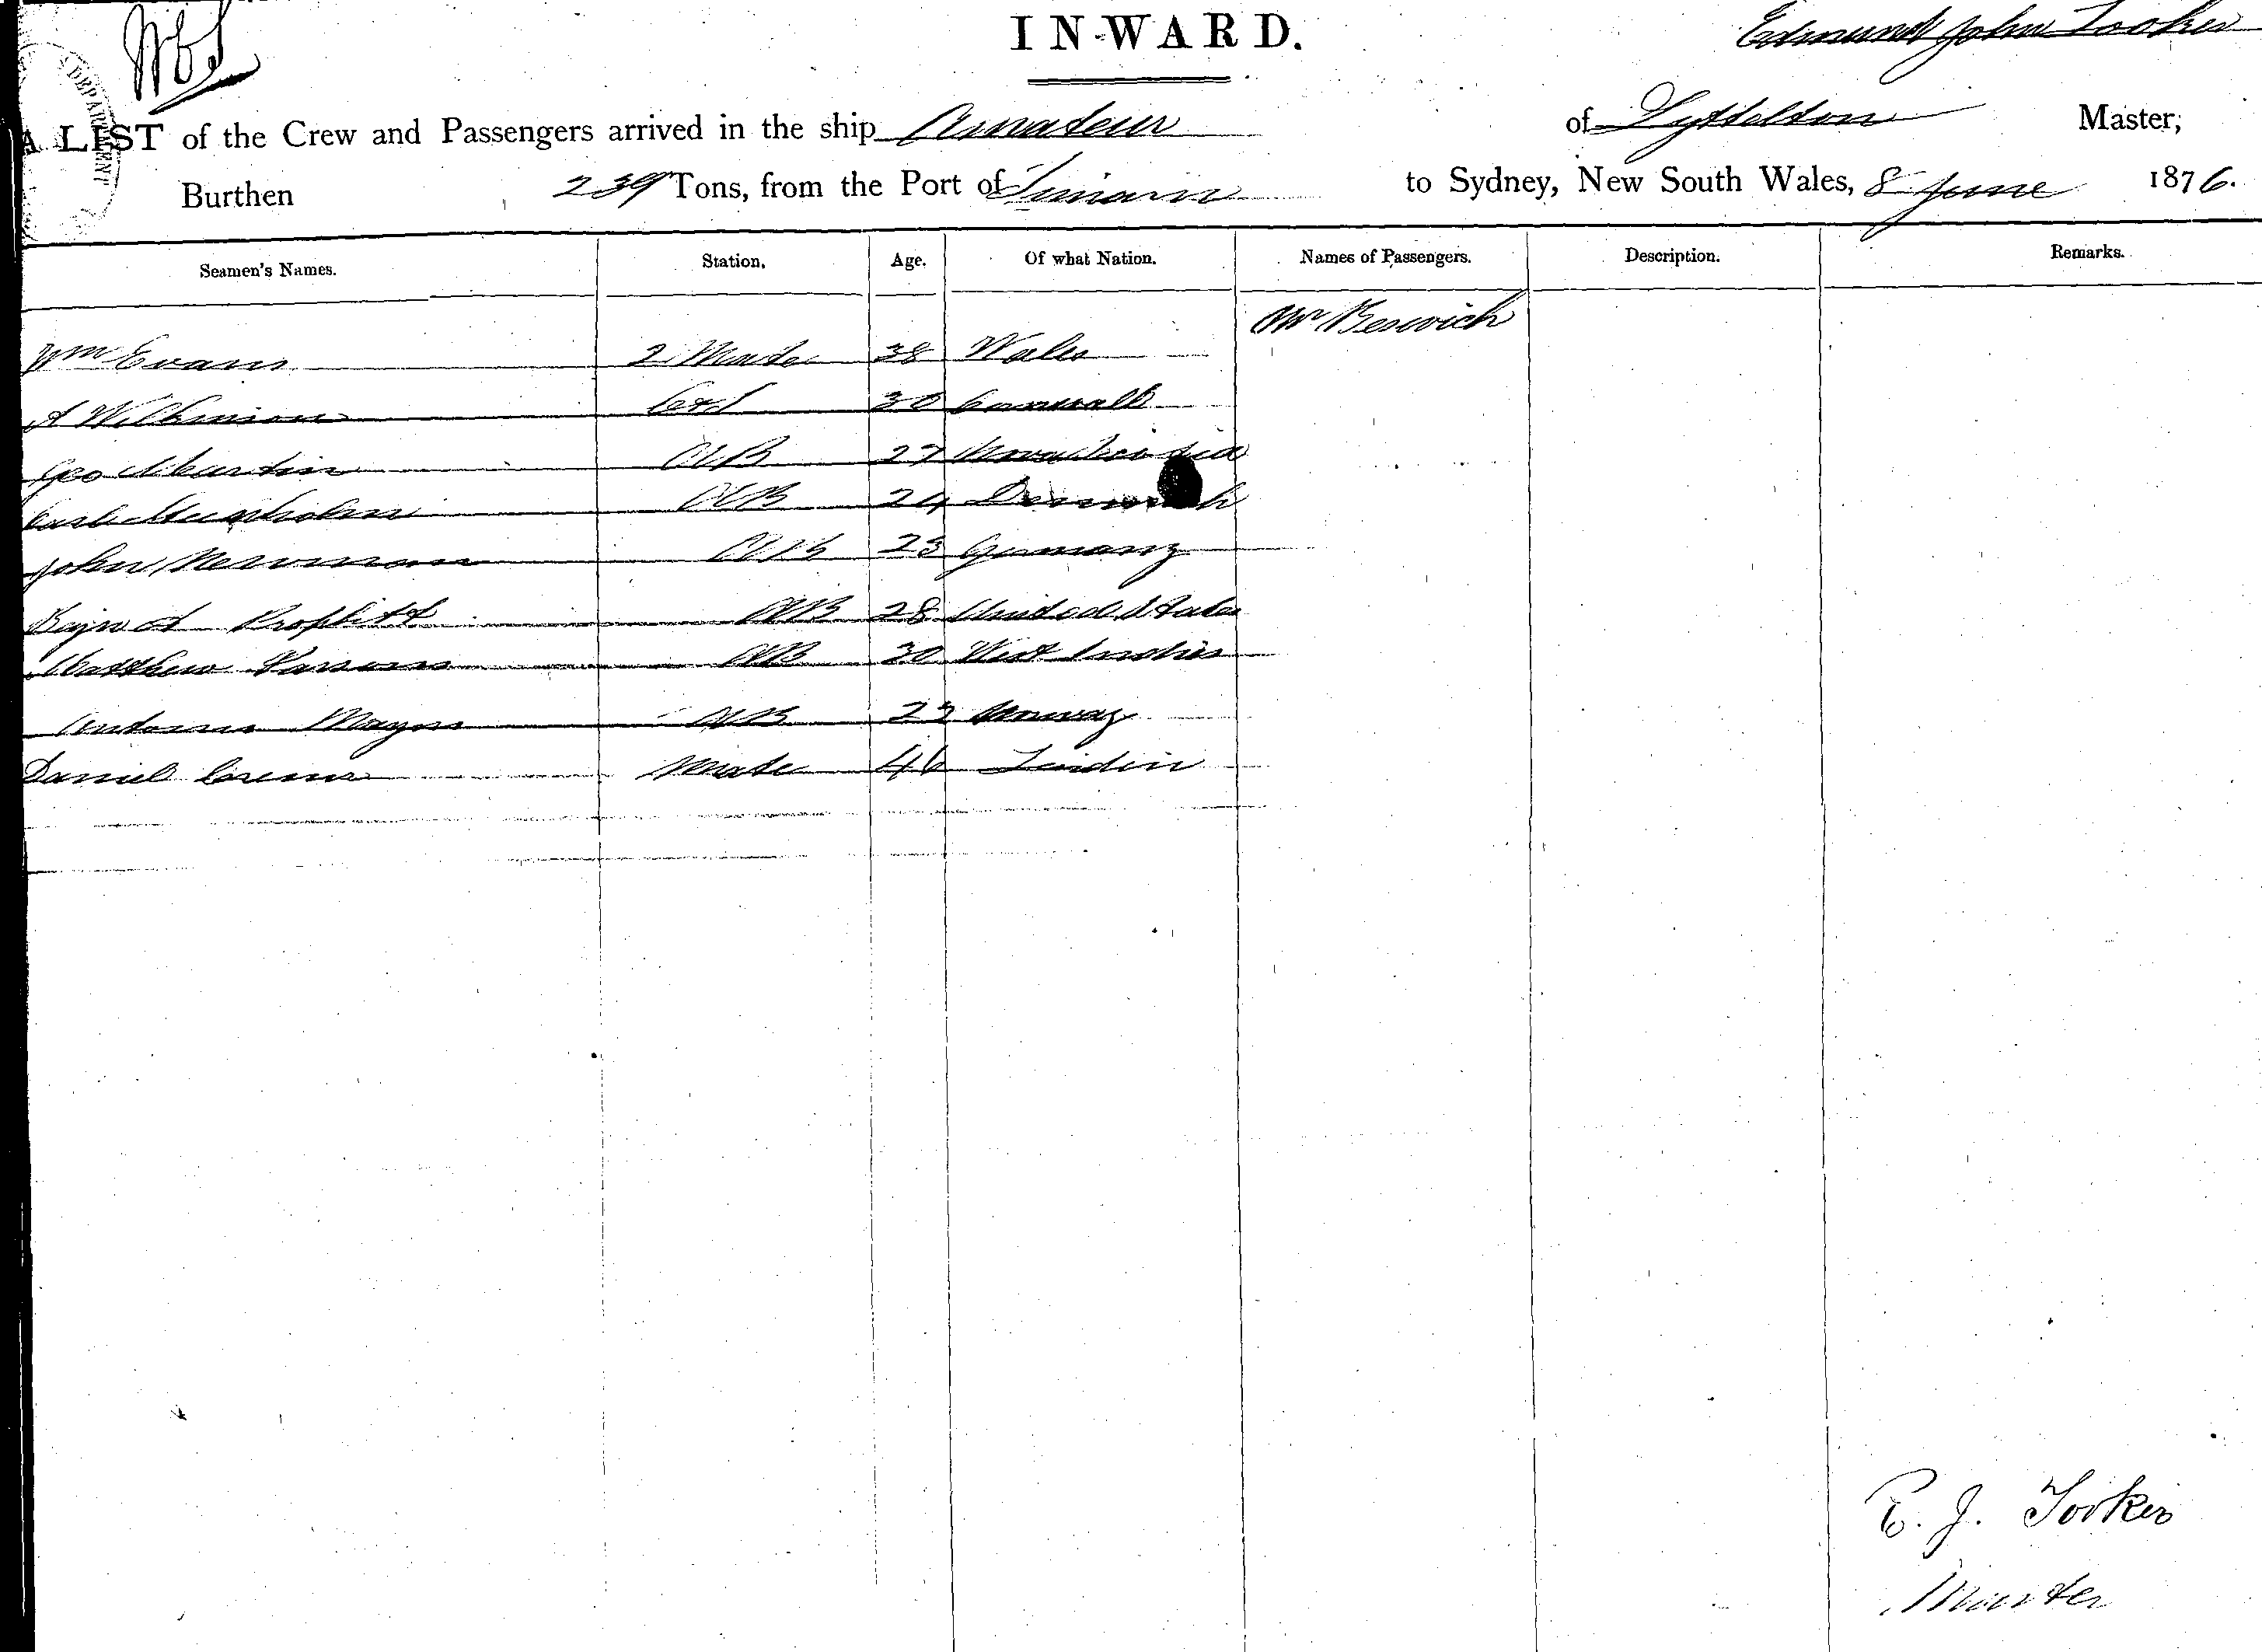 INWARD.
Edmund John Tooker
DEPARTMENT
A LIST of the Crew and Passengers arrived in the ship Amateur of Lyttelton Master,
Burthen 239 Tons, from the Port of Timaru to Sydney, New South Wales, 8 June 1876.
Seamen's Names. Station. Age. Of what Nation. Names of Passengers. Description. Remarks.
Mr Beswick
Wm Evans 2 Mate 38 Wales
A Wilkinson 30 Cornwall
Geo Martin AB 27
Carl AB 24 Denmark
John Newman AB 23 Germany
AB 28 United States
Matthew Parsons AB 30 West Indies
Mayn AB 27 Norway
Daniel Mate 46
E. J. Tooker
Master